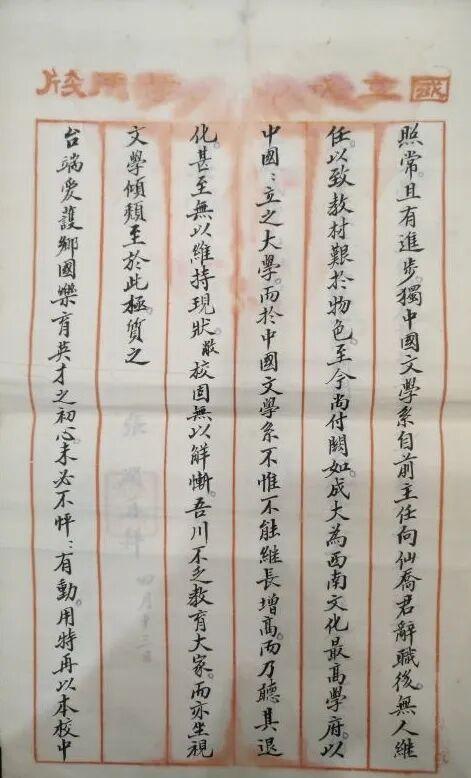 國立成學用牋
照常。且有進步。獨中國文學系自前主任向仙喬君辭職後。無人維
任。以致教材艱於物色。至今尚付闕如。成大為西南文化最高學府。以
中國〻立之大學。而於中國文學系不惟不能維長增高。而乃聽其退
化。甚至無以維持現狀。敝校固無以解慚。吾川不乏教育大家。而亦坐視
文學傾頹至於此極。質之
台端愛護鄉國樂育英才之初心。未必不怦〻有動。用特再以本校中